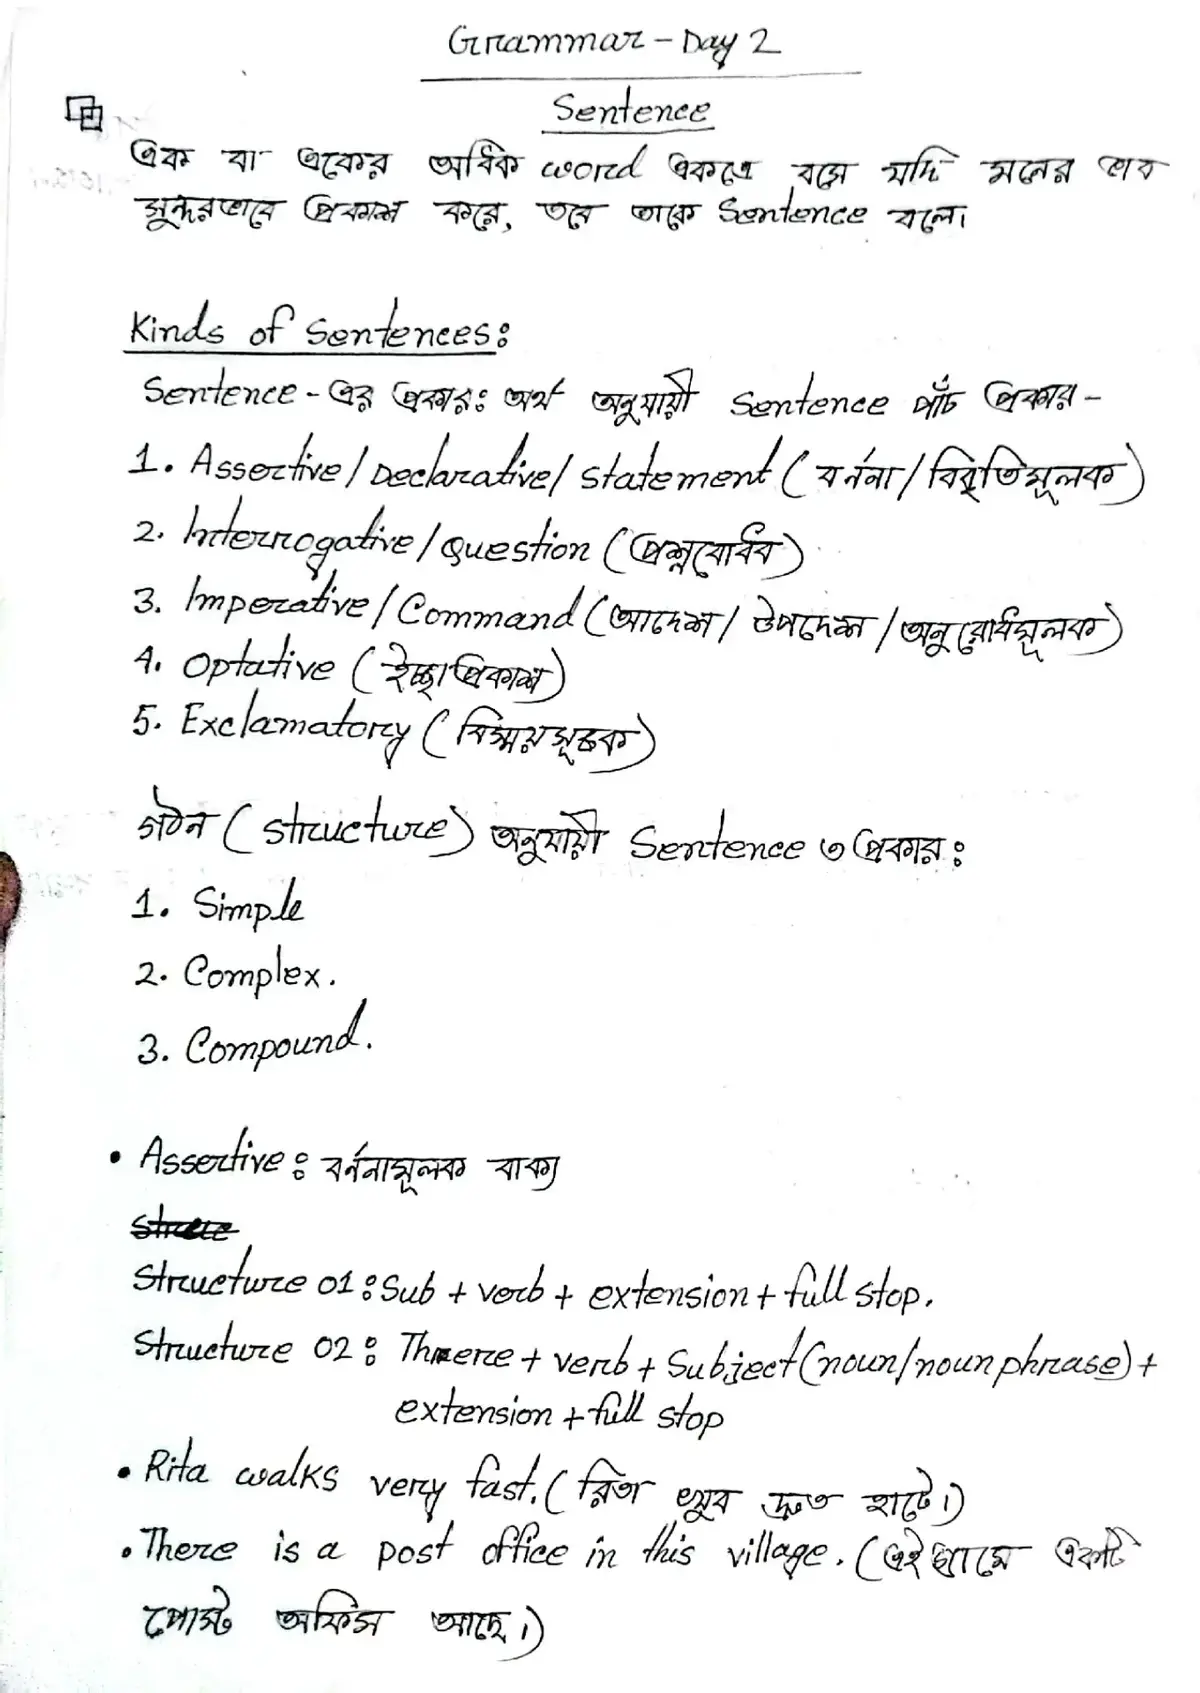 Grammar - Day 2
Sentence
এক বা একের অধিক word একত্রে বসে যদি মনের ভাব
সুন্দরভাবে প্রকাশ করে, তবে তাকে Sentence বলে।
Kinds of Sentences:
Sentence - এর প্রকার: অর্থ অনুযায়ী Sentence পাঁচ প্রকার -
1. Assertive / Declarative / Statement ( বর্ননা / বিবৃতিমূলক )
2. Interrogative / Question ( প্রশ্নবোধক )
3. Imperative / Command ( আদেশ / উপদেশ / অনুরোধমূলক )
4. Optative ( ইচ্ছা প্রকাশ )
5. Exclamatory ( বিস্ময়সূচক )
গঠন ( structure ) অনুযায়ী Sentence ৩ প্রকার :
1. Simple
2. Complex.
3. Compound.
• Assertive : বর্ননামূলক বাক্য
Structure 01 : Sub + verb + extension + full stop.
Structure 02 : There + verb + Subject (noun/noun phrase) +
extension + full stop
• Rita walks very fast. ( রিতা খুব দ্রুত হাটে। )
• There is a post office in this village. ( এই গ্রামে একটি
পোস্ট অফিস আছে। )